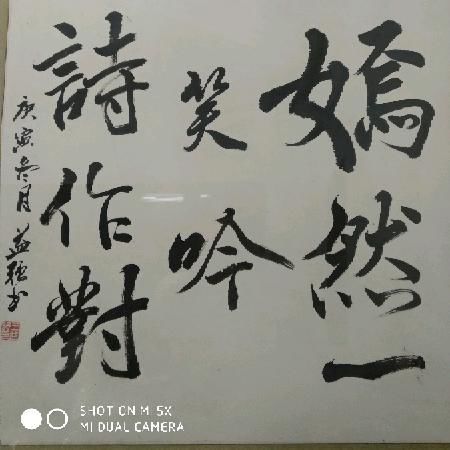 嫣然一
笑吟
詩作對
庚寅冬月益強书
SHOT ON MI 5X
MI DUAL CAMERA